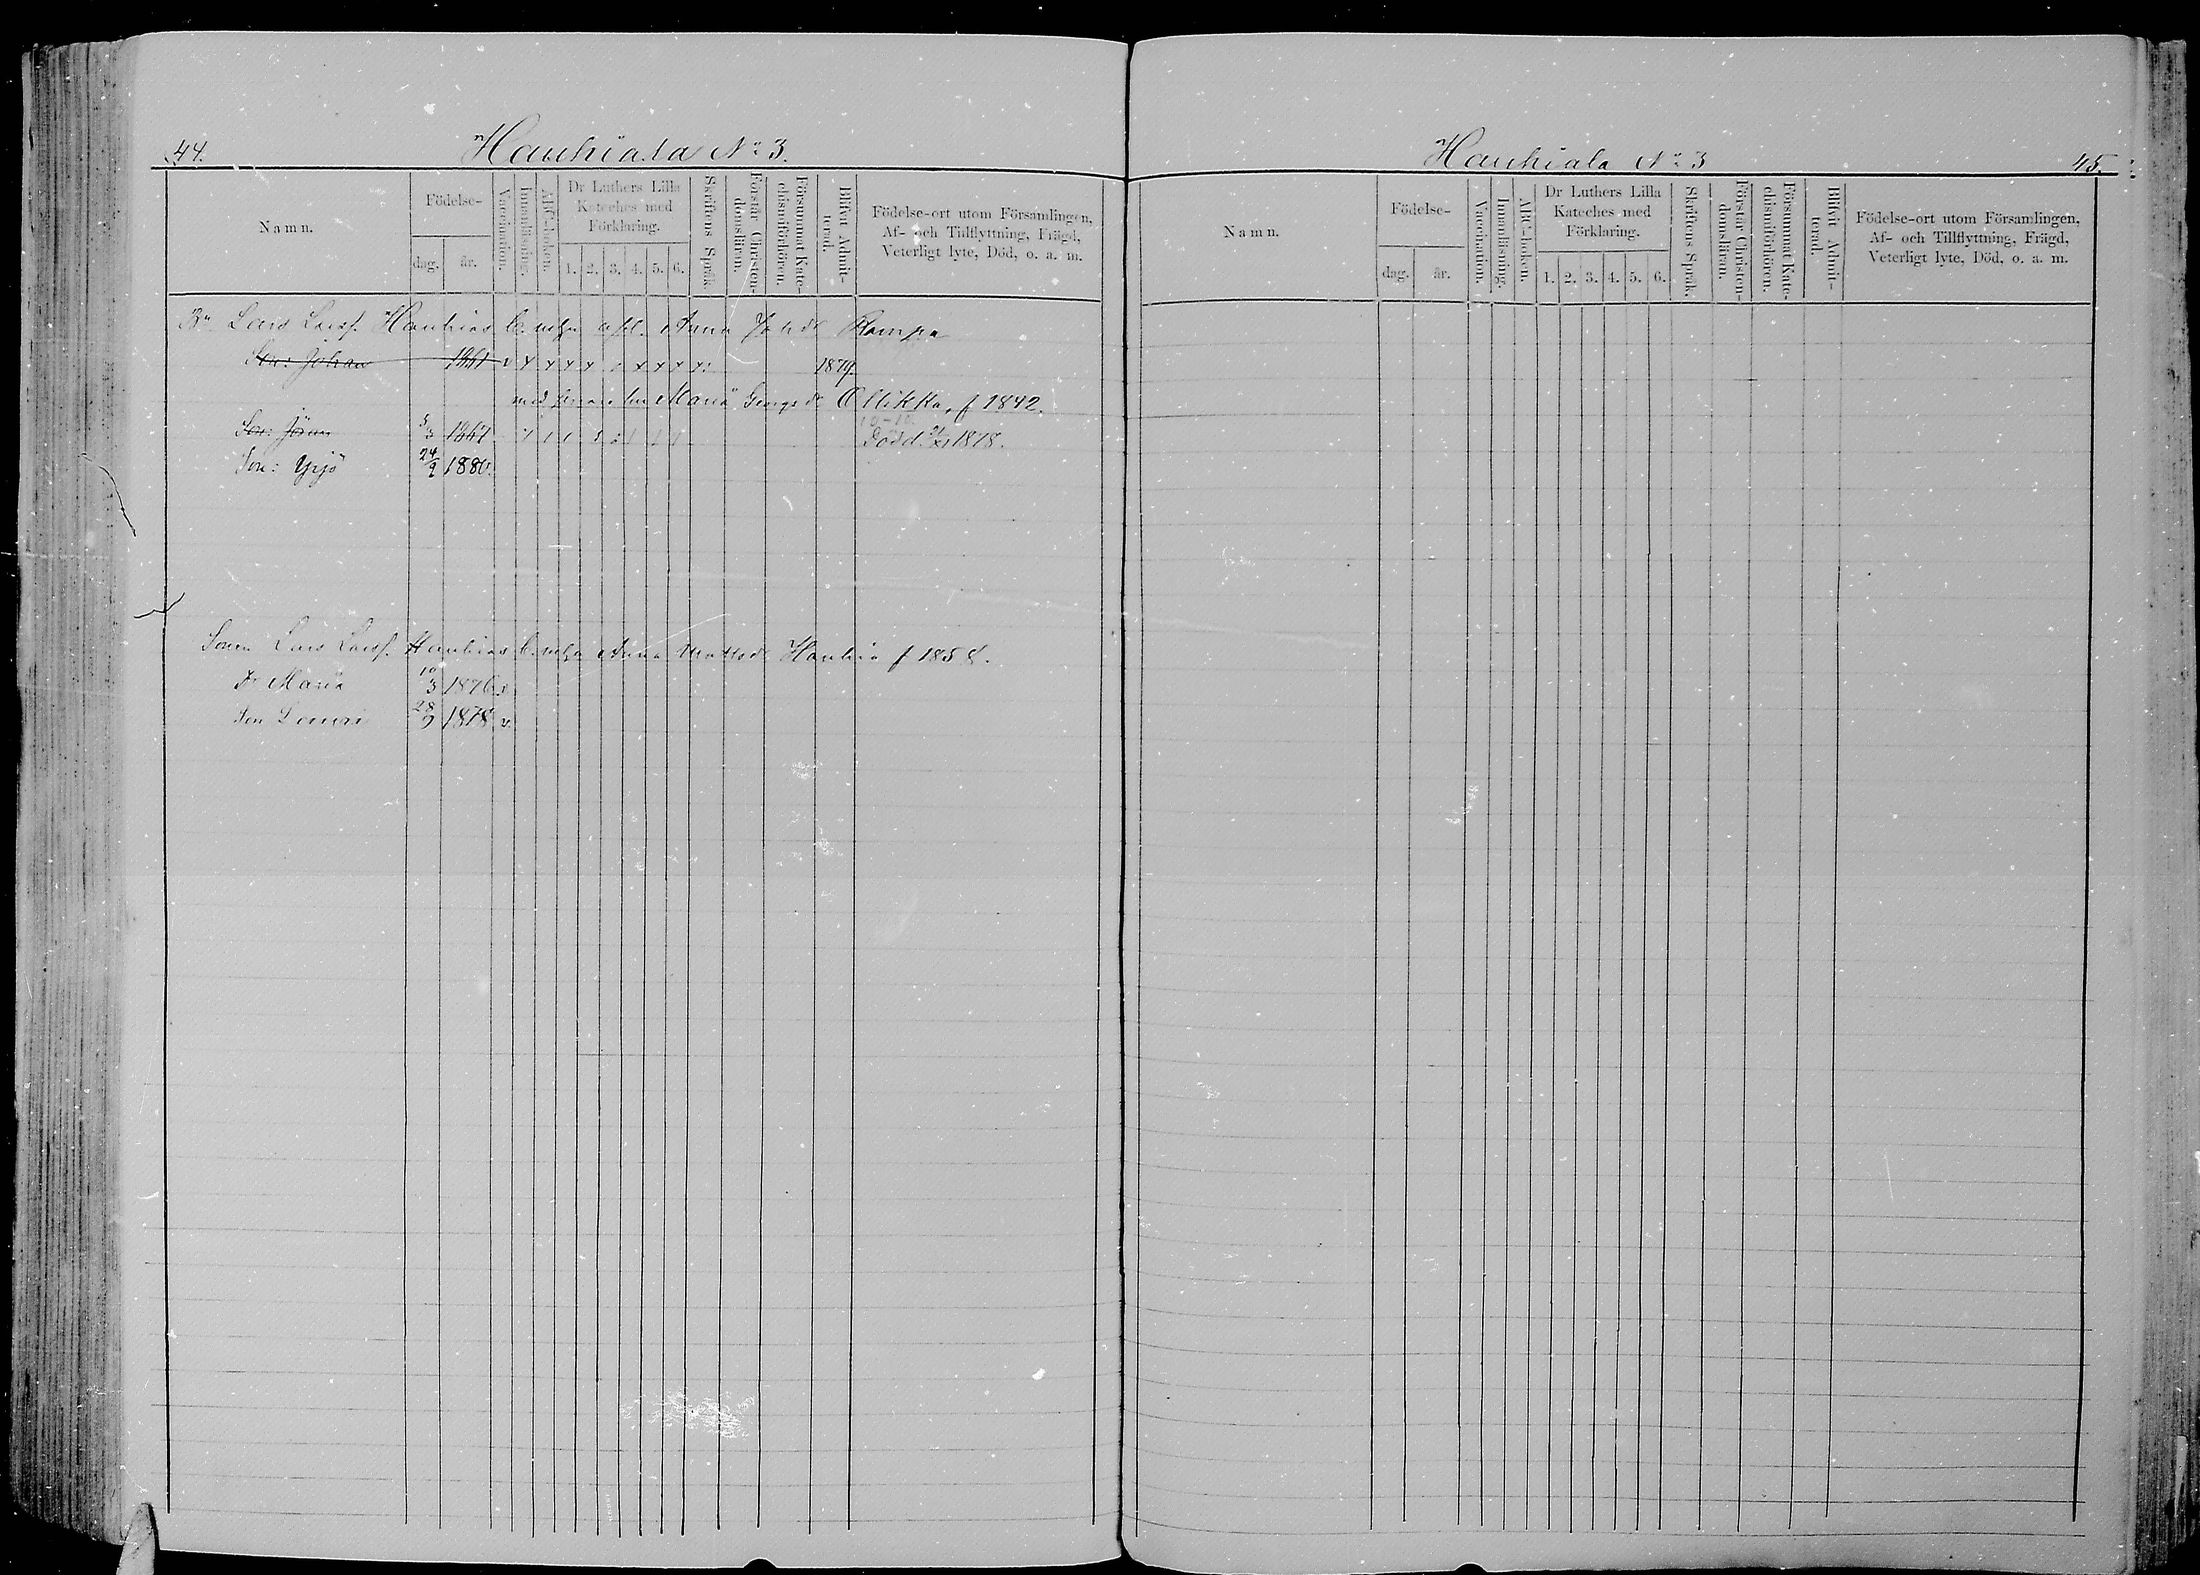 44.
Hauhiala № 3.
Namn.
Födelse-
dag.
år.
Vaccination.
Innanläsning.
ABC-boken.
Dr Luthers Lilla
Kateches med
Förklaring.
1. 2. 3. 4. 5. 6.
Skriftens Språk.
Förstår Christen-
domsläran.
Försummat Kate-
chismiförhören.
Blifvit Admit-
terad.
Födelse-ort utom Församlingen,
Af- och Tillflyttning, Frägd,
Veterligt lyte, Död, o. a. m.
Lars Larsf. Hauhias Anna Rompa
Son: Johan 1861 v x x x x x x x x 1879.
med Maria Georgsdr Ollikka, f 1842.
Son: Jöran 5/3 1867 Död 21/XI 1878.
Son: Yrjö 24/9 1880.
Sonen Lars Larsf. Hauhias Anna Mattsdr Hauhia f 1858.
Dr Maria 10/3 1876 v
Son Lauri 28/9 1878 v.
Hauhiala № 3
45.
Namn.
Födelse-
dag.
år.
Vaccination.
Innanläsning.
ABC-boken.
Dr Luthers Lilla
Kateches med
Förklaring.
1. 2. 3. 4. 5. 6.
Skriftens Språk.
Förstår Christen-
domsläran.
Försummat Kate-
chismiförhören.
Blifvit Admit-
terad.
Födelse-ort utom Församlingen,
Af- och Tillflyttning, Frägd,
Veterligt lyte, Död, o. a. m.